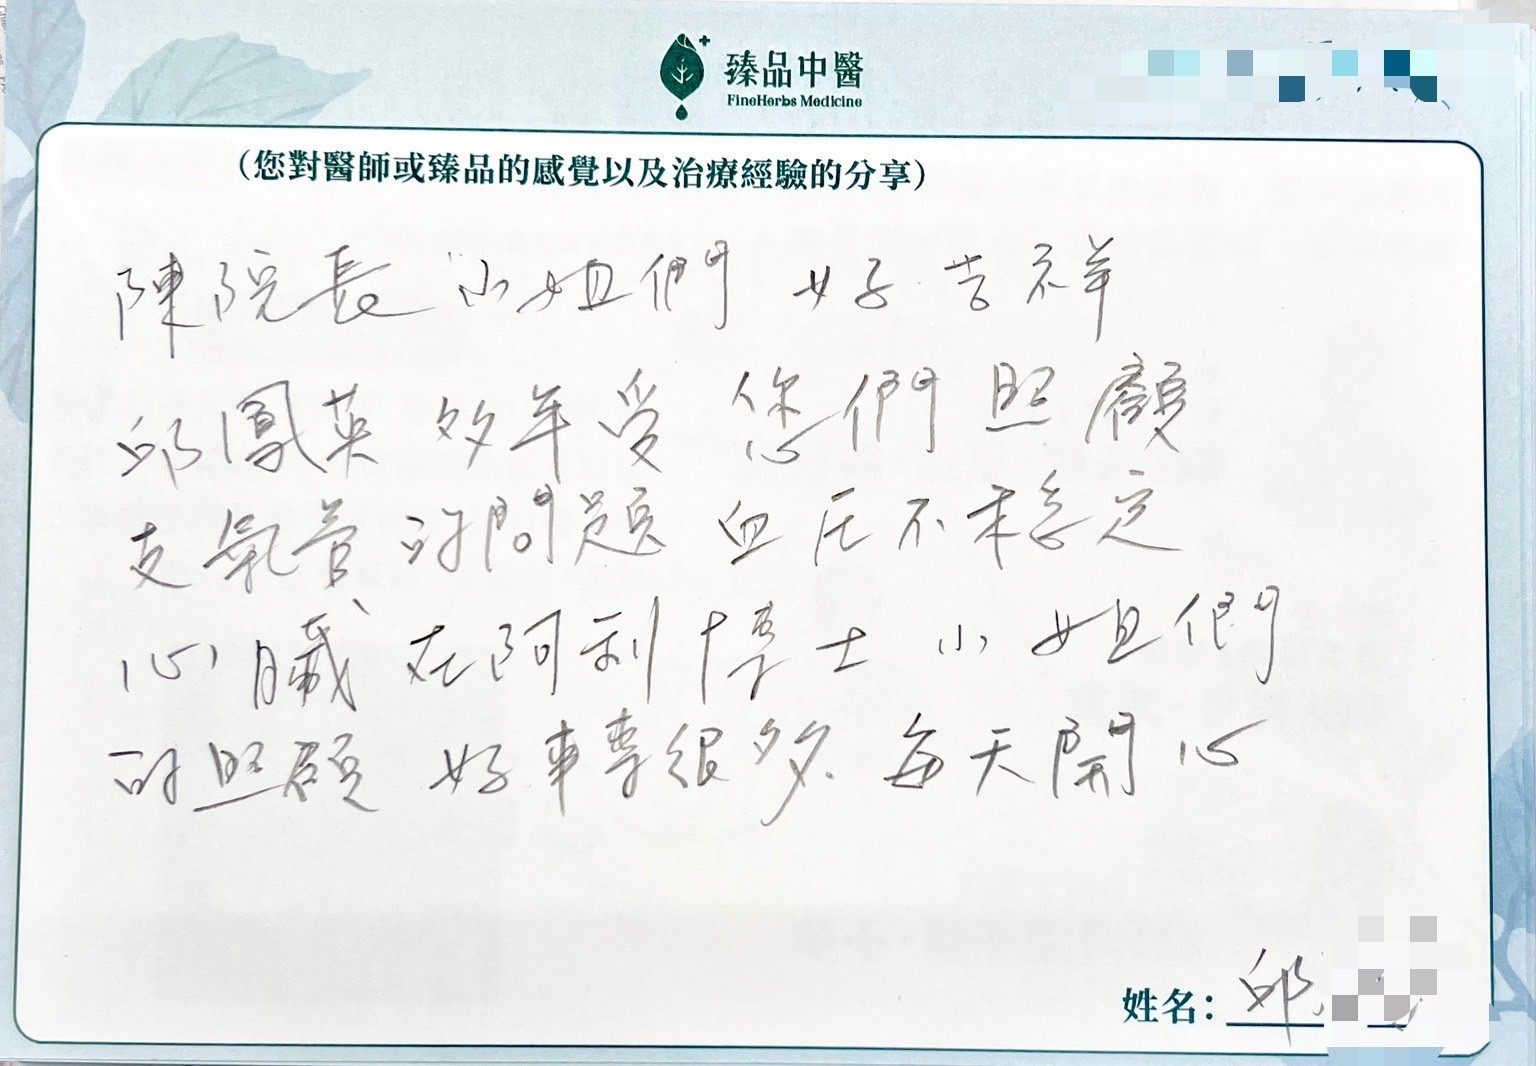 臻品中醫
FineHerbs Medicine
(您對醫師或臻品的感覺以及治療經驗的分享)
陳院長 小姐們 好 吉祥
邱鳳英 多年受 您們 照顧
支氣管 的問題 血压不穩定
心臟 在阿利博士 小姐們
的照顧 好事專很多. 每天開心
姓名: 邱